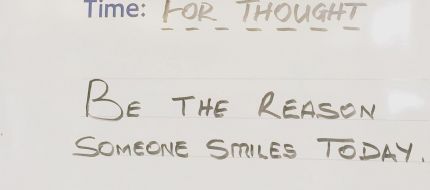 Time: FOR THOUGHT
BE THE REASON
SOMEONE SMILES TODAY.